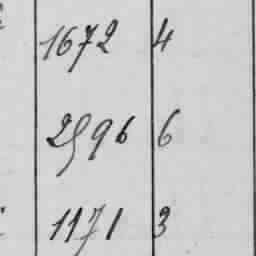 1672 4
2596 6
1171 3